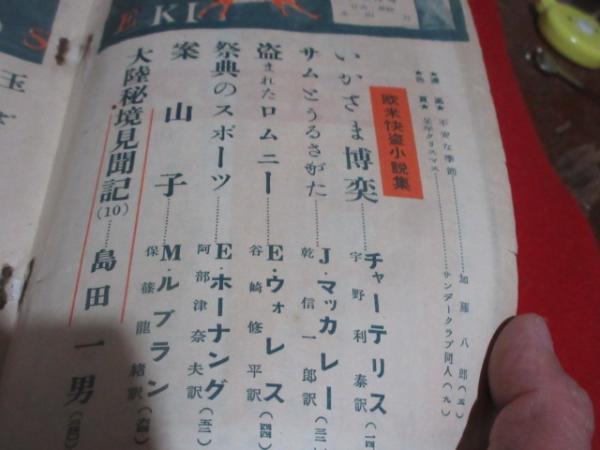 EKI
S
★漫風★ 不安な季節……加藤八郎(五)
★仝頁★ 定年クリスマス……サンデークラブ同人(九)
欧米快盗小説集
いかさま博奕……チャーテリス
宇野利泰訳(一四
サムとうるさがた……J・マッカレー
乾信一郎訳(三二
盗まれたロムニー……E・ウォレス
谷崎修平訳(四四)
祭典のスポーツ……E・ホーナング
阿部津奈夫訳(五二
案山子……M・ルブラン
保篠龍緒訳(六四)
大陸秘境見聞記(10)……島田一男
玉